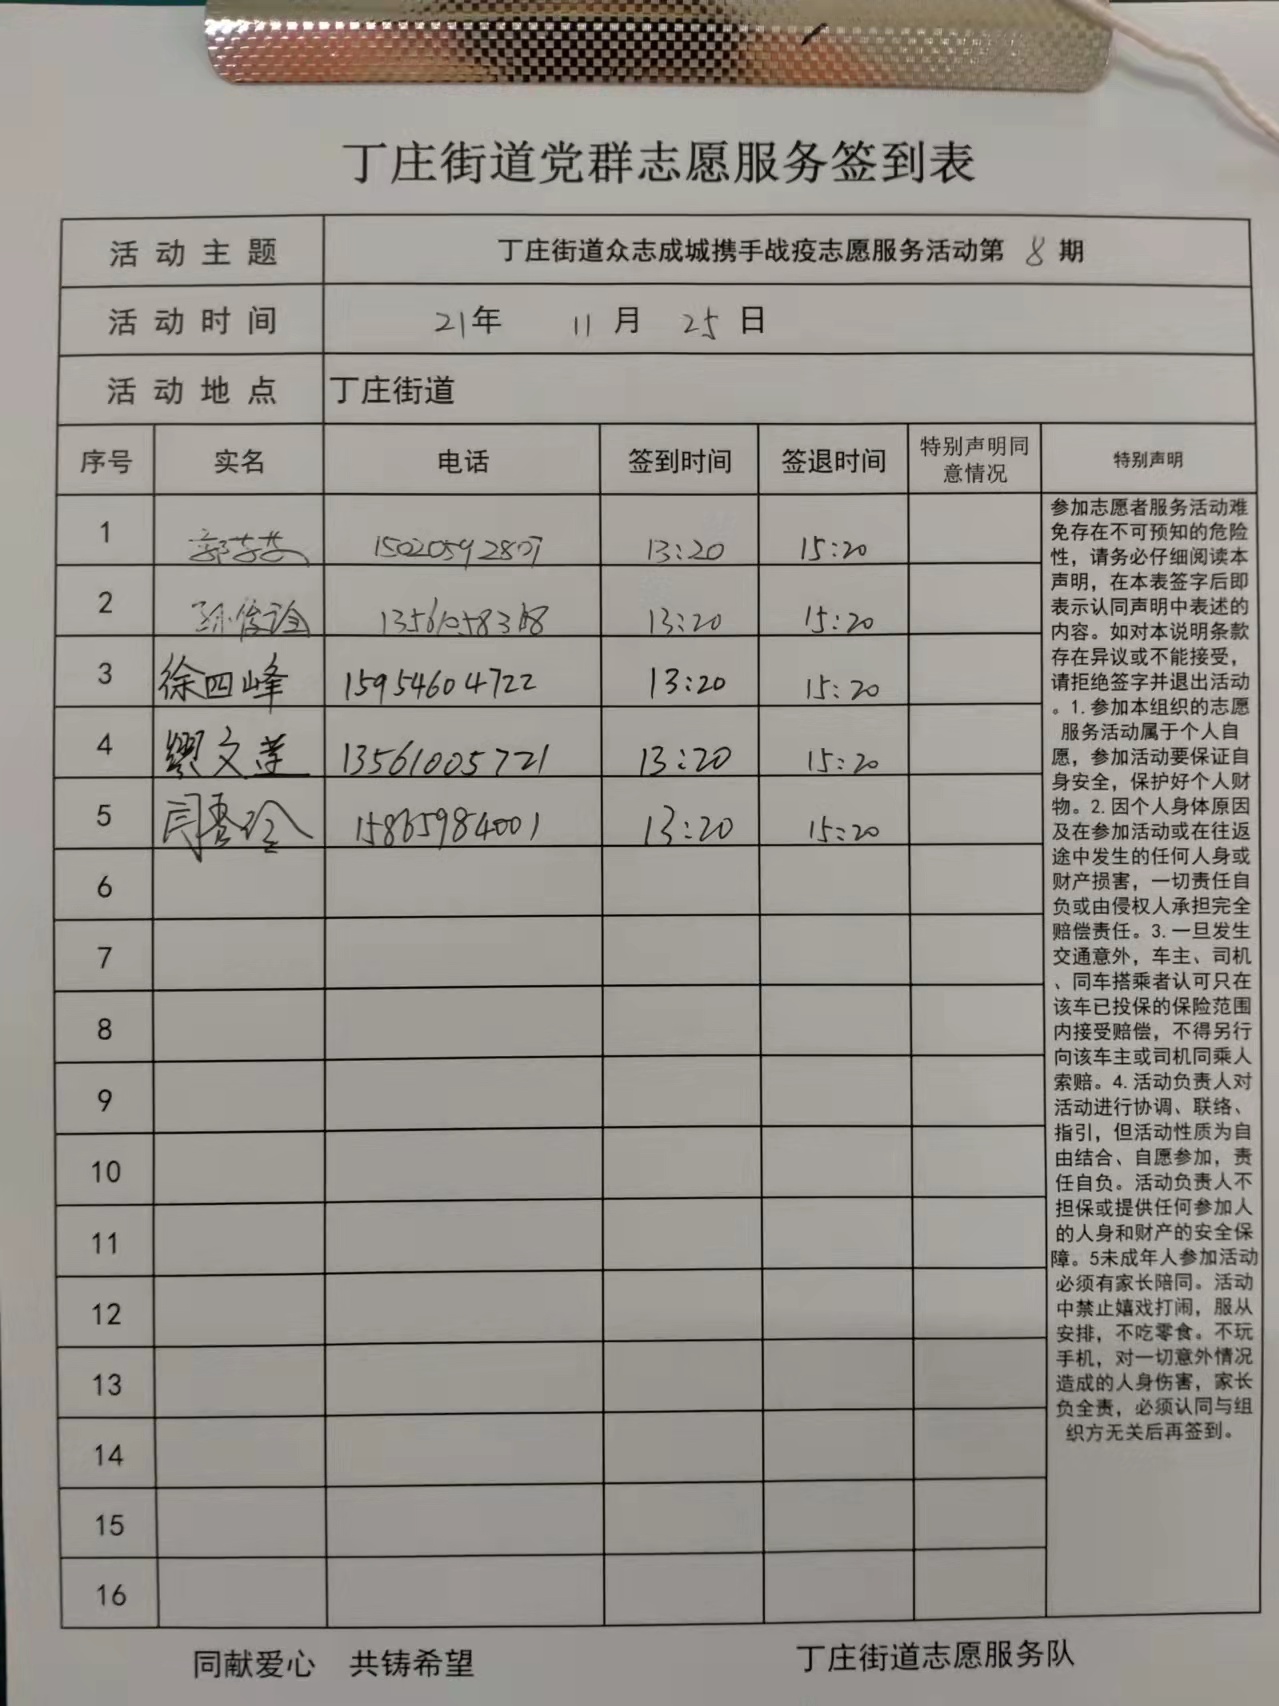 丁庄街道党群志愿服务签到表
活动主题 丁庄街道众志成城携手战疫志愿服务活动第 8 期
活动时间 21年 11月 25日
活动地点 丁庄街道
序号 实名 电话 签到时间 签退时间 特别声明同意情况 特别声明
1 13:20 15:20
2 13:20 15:20
3 徐四峰 15954604722 13:20 15:20
4 文莲 13561005721 13:20 15:20
5 15865984001 13:20 15:20
6
7
8
9
10
11
12
13
14
15
16
参加志愿者服务活动难
免存在不可预知的危险
性，请务必仔细阅读本
声明，在本表签字后即
表示认同声明中表述的
内容。如对本说明条款
存在异议或不能接受，
请拒绝签字并退出活动
。1.参加本组织的志愿
服务活动属于个人自
愿，参加活动要保证自
身安全，保护好个人财
物。2.因个人身体原因
及在参加活动或在往返
途中发生的任何人身或
财产损害，一切责任自
负或由侵权人承担完全
赔偿责任。3.一旦发生
交通意外，车主、司机
、同车搭乘者认可只在
该车已投保的保险范围
内接受赔偿，不得另行
向该车主或司机同乘人
索赔。4.活动负责人对
活动进行协调、联络、
指引，但活动性质为自
由结合、自愿参加，责
任自负。活动负责人不
担保或提供任何参加人
的人身和财产的安全保
障。5未成年人参加活动
必须有家长陪同。活动
中禁止嬉戏打闹，服从
安排，不吃零食。不玩
手机，对一切意外情况
造成的人身伤害，家长
负全责，必须认同与组
织方无关后再签到。
同献爱心 共铸希望 丁庄街道志愿服务队